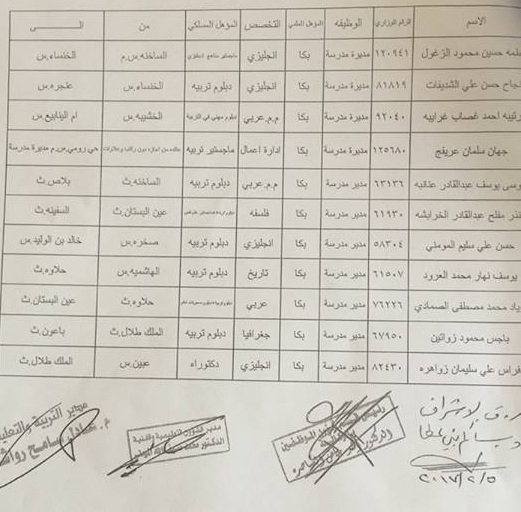 الاسم الرقم الوزاري الوظيفه المؤهل العلمي التخصص المؤهل المسلكي من الـى
حسين محمود الزغول ١٢٠٩٤١ مديرة مدرسة بكا انجليزي ماجستير مناهج انجليزي الساخنه.س.م الخنساء.س
نجاح حسن علي الشديفات ٨١٨١٩ مديرة مدرسة بكا انجليزي دبلوم تربيه الخنساء.س عنجره.س
رتيبه احمد غصاب غرايبه ٩٢٠٤٠ مديرة مدرسة بكا م.م.عربي دبلوم مهني في التربية الخشيبه.س ام الينابيع.س
جهان سلمان عريفج ١٢٥٦٨٠ مديرة مدرسة بكا ادارة اعمال ماجستير تربية عائده من اجازه دون راتب وعلاوات حي رومي.س.م مديرة مدرسة
يوسف عبدالقادر عنانبه ٦٣١٣٦ مدير مدرسة بكا م.م.عربي دبلوم تربيه الساخنة.ث بلاص.ث
مفلح عبدالقادر الخرابشه ٦١٩٣٠ مدير مدرسة بكا فلسفه عين البستان.ث السفينه.ث
حسن علي سليم المومني ٥٨٣٠٤ مدير مدرسة بكا انجليزي دبلوم تربيه صخره.س خالد بن الوليد.س
يوسف نهار محمد العرود ٦١٥٠٧ مدير مدرسة بكا تاريخ دبلوم تربيه الهاشميه.س حلاوه.ث
محمد مصطفى الصمادي ٧٦٢٢٦ مدير مدرسة بكا عربي حلاوه.ث عين البستان.ث
ناجس محمود زواتين ٦٧٩٥٠ مدير مدرسة بكا جغرافيا دبلوم تربيه الملك طلال.ث باعون.ث
فراس علي سليمان زواهره ٨٢٤٣٠ مدير مدرسة بكا انجليزي دكتوراه عبين.س الملك طلال.ث
مدير التربية والتعليم
مدير الشؤون التعليمية والفنية
الدكتور محمد
٢٠١٧/٢/٥